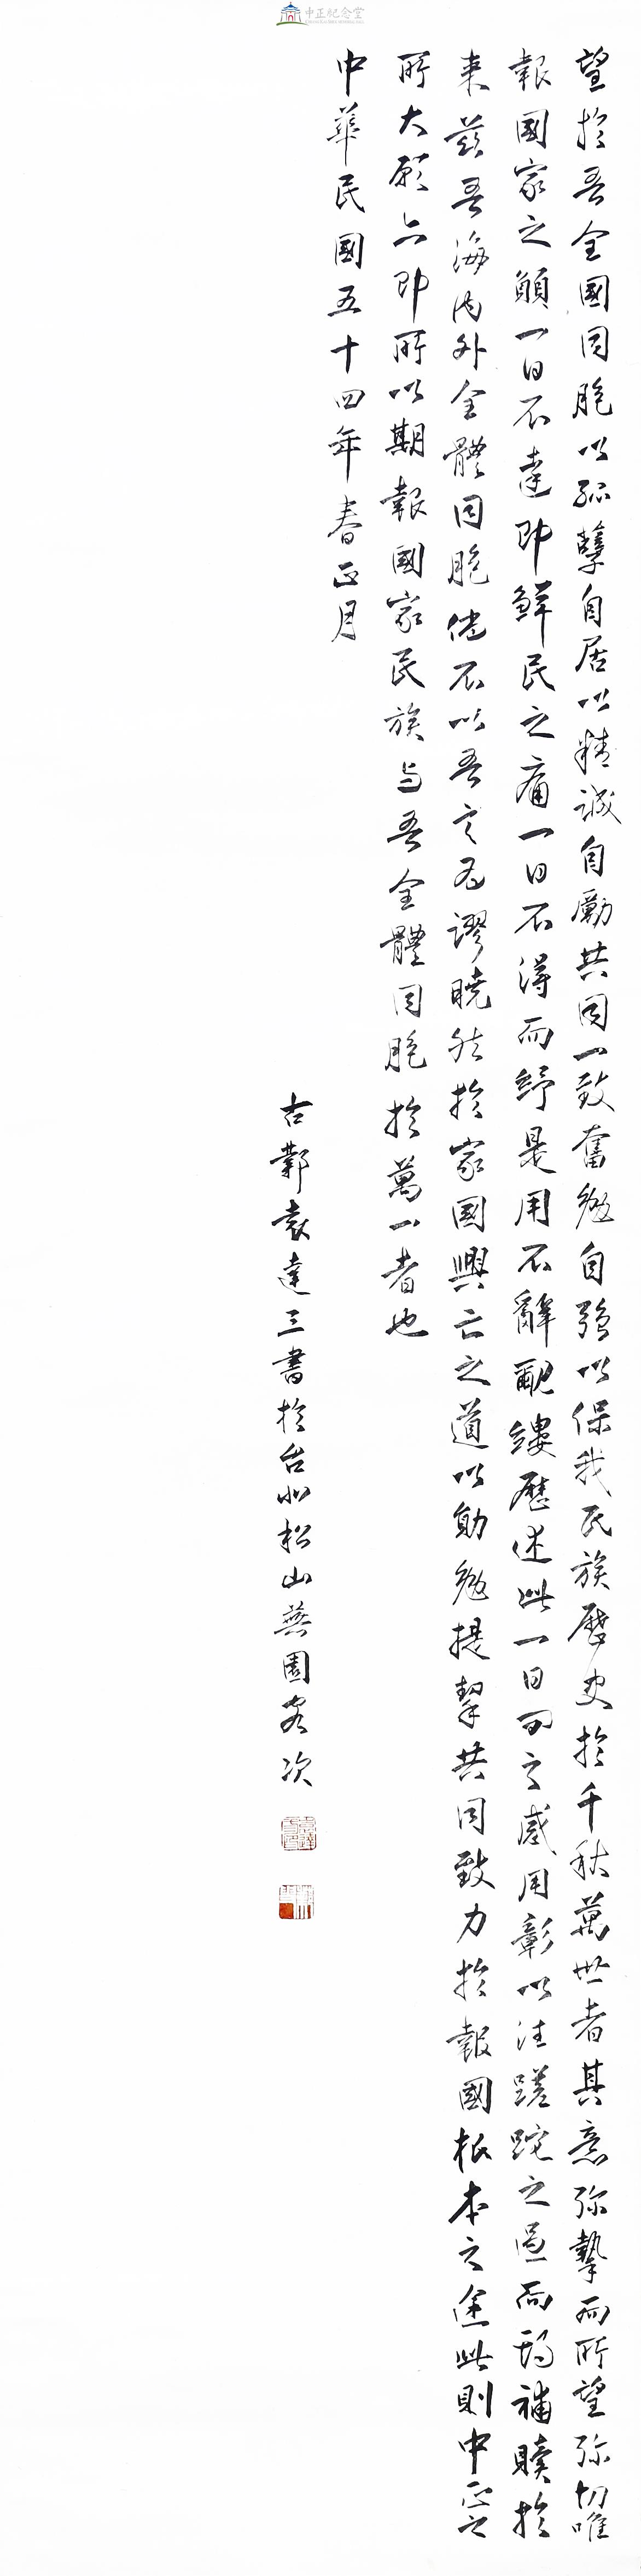 中正紀念堂
望於吾全國同胞以孤孽自居以精誠自勵共同一致奮勉自強以保我民族歷史於千秋萬世者其意弥摯而所望弥切唯
報國家之願一日不達即鮮民之痛一日不得而紓是用不辭覼縷歷述此一日間之感用彰以往蹉跎之過而期補贖於
来茲吾海内外全體同胞儻不以吾言為謬曉然於家國興亡之道以勖勉提挈共同致力於報國根本之途此則中正之
所大願亦即所以期報國家民族与吾全體同胞於萬一者也
中華民國五十四年春正月
古鄞袁達三書於台北松山燕園客次